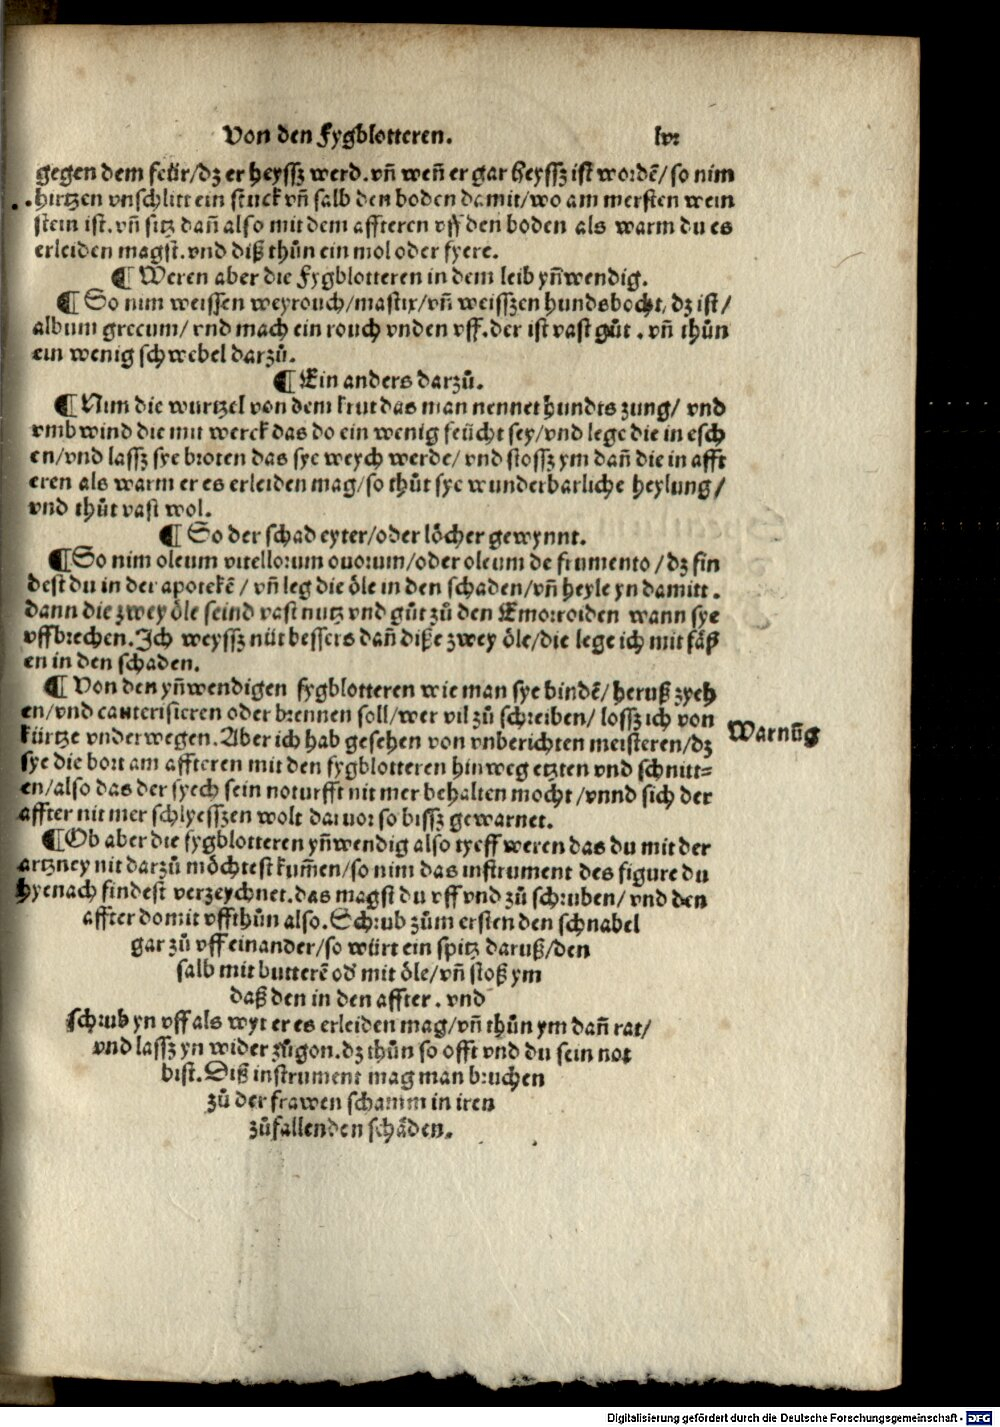 Von den Fygblotteren. lvi
gegen dem feür/dz er heyssz werd. vñ weñ er gar heyssz ist wordē/so nim
hirtzen vnschlitt ein stuck vñ salb den boden damit/wo am mersten wein
stein ist. vñ sitz dañ also mit dem affteren vff den boden als warm du es
erleiden magst. vnd diß thůn ein mol oder fyere.
¶ Weren aber die Fygblotteren in dem leib yñwendig.
¶ So nim weissen weyrouch/mastix/vñ weisszen hundsbocht, dz ist/
album grecum/vnd mach ein rouch vnden vff. der ist vast gůt. vñ thůn
ein wenig schwebel darzů.
¶ Ein anders darzů.
¶ Nim die wurtzel von dem krut das man nennet hundts zung/ vnd
vmbwind die mit werck das do ein wenig feücht sey/vnd lege die in esch
en/vnd lassz sye broten das sye weych werde/ vnd stossz ym dañ die in afft
eren als warm er es erleiden mag/so thůt sye wunderbarliche heylung/
vnd thůt vast wol.
¶ So der schad eyter/oder löcher gewynnt.
¶ So nim oleum vitellorum ouorum/oder oleum de frumento/dz fin
dest du in der apotekē/ vñ leg die öle in den schaden/vñ heyle yn damitt.
dann die zwey öle seind vast nutz vnd gůt zů den Emorroiden wann sye
vffbrechen. Ich weyssz nüt bessers dañ diße zwey öle/die lege ich mit fäß
en in den schaden.
¶ Von den yñwendigen fygblotteren wie man sye bindē/heruß zyeh
en/vnd cauterisieren oder brennen soll/wer vil zů schreiben/ lossz ich von
kürtze vnderwegen. Aber ich hab gesehen von vnberichten meisteren/dz
Warnūg
sye die bort am affteren mit den fygblotteren hinweg etzten vnd schnitt=
en/also das der syech sein noturfft nit mer behalten mocht/vnnd sich der
affter nit mer schlyesszen wolt daruor so bissz gewarnet.
¶ Ob aber die fygblotteren yñwendig also tyeff weren das du mit der
artzney nit darzů möchtest kum̃en/so nim das instrument des figure du
hyenach findest verzeychnet. das magst du vff vnd zů schruben/ vnd den
affter domit vffthůn also. Schrub zům ersten den schnabel
gar zů vff einander/so würt ein spitz daruß/den
salb mit butterē od' mit öle/vñ stoß ym
daß den in den affter. vnd
schrub yn vff als wyt er es erleiden mag/vñ thůn ym dañ rat/
vnd lassz yn wider zůgon. dz thůn so offt vnd du sein not
bist. Diß instrument mag man bruchen
zů der frawen schamm in iren
zůfallenden schäden.
Digitalisierung gefördert durch die Deutsche Forschungsgemeinschaft - DFG